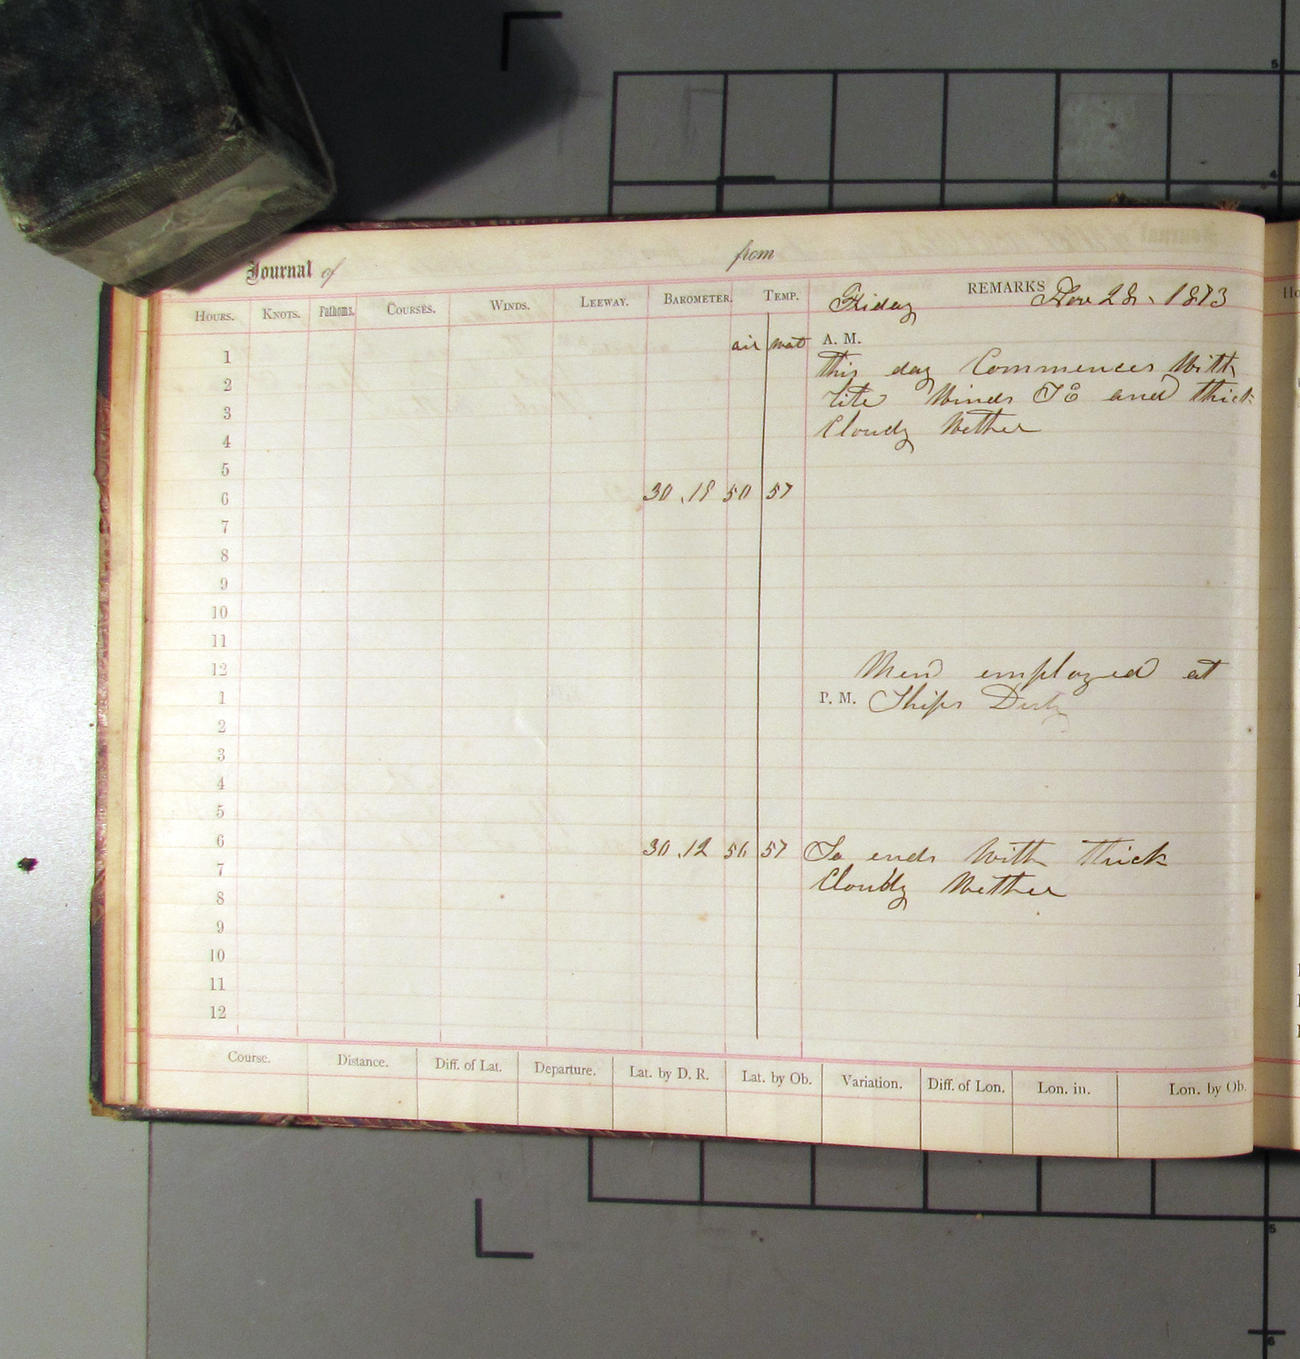 Journal of from
HOURS. KNOTS. Fathoms. COURSES. WINDS. LEEWAY. BAROMETER. TEMP. REMARKS
Friday Nov 28. 1873
air wat A. M.
1 This day Commences With
2 lite Winds SE and thick
3 Cloudy Wether
4
5
6 30.18 50 57
7
8
9
10
11
12 Men employed at
1 P. M. Ships Duty
2
3
4
5
6 30.12 56 57 So ends With thick
7 Cloudy Wether
8
9
10
11
12
Course. Distance. Diff. of Lat. Departure. Lat. by D. R. Lat. by Ob. Variation. Diff. of Lon. Lon. in. Lon. by Ob.
5
4
5
6